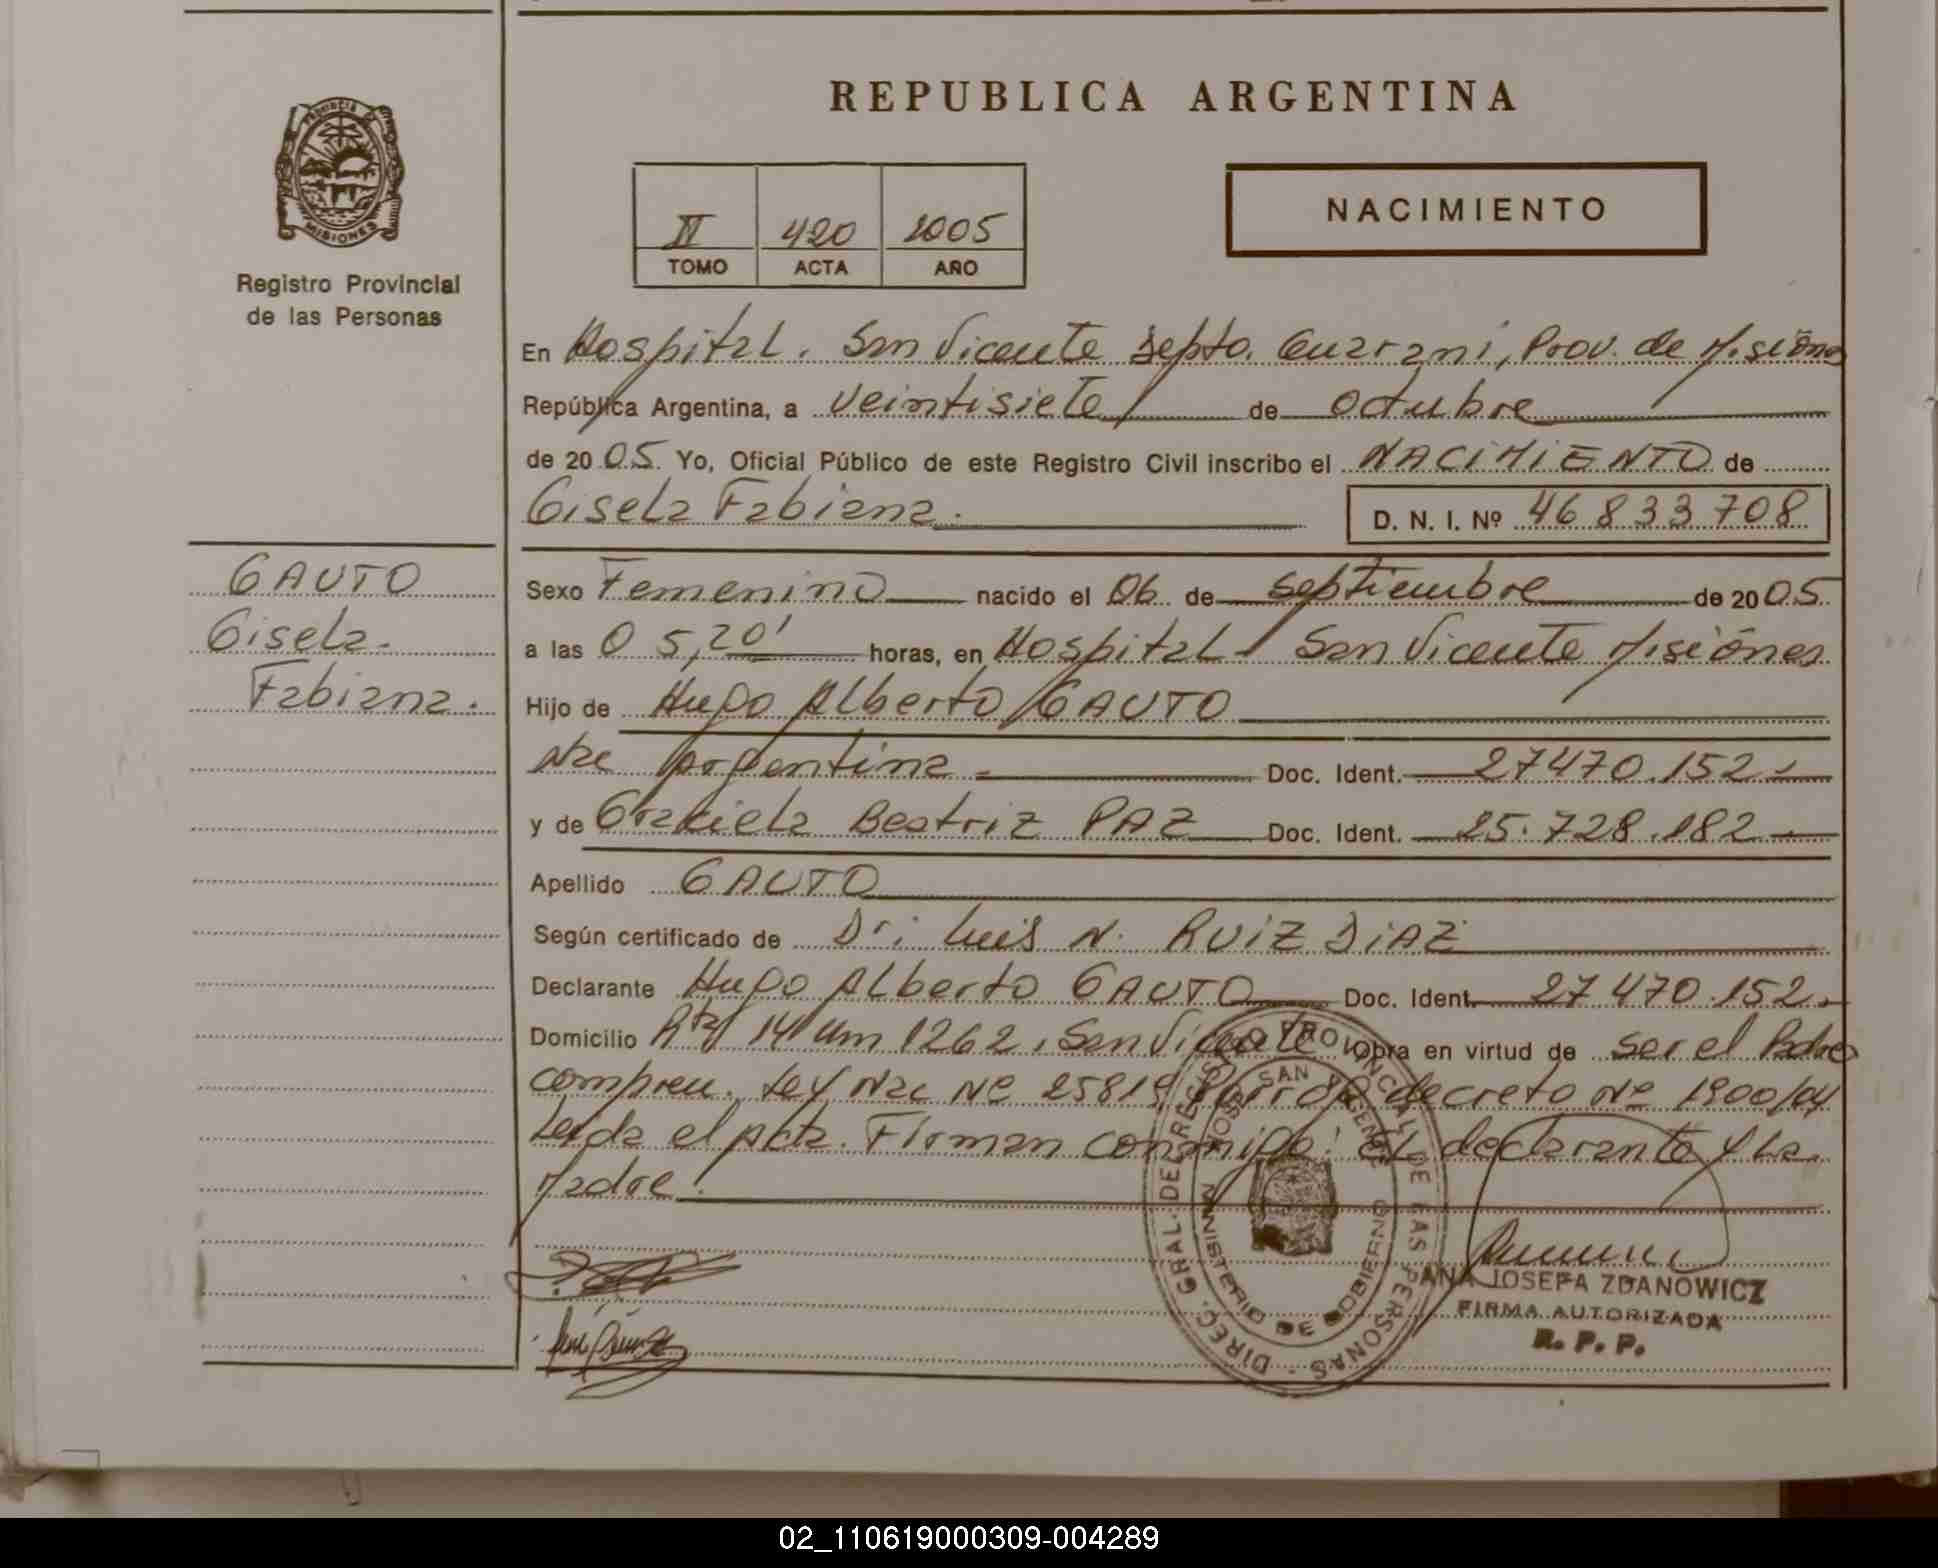 REPUBLICA ARGENTINA
PROVINCIA DE MISIONES
Registro Provincial
de las Personas
NACIMIENTO
II 420 2005
TOMO ACTA AÑO
En Hospital. San Vicente Depto. Guarani, Prov. de Misiones
República Argentina, a veintisiete de octubre
de 2005. Yo, Oficial Público de este Registro Civil inscribo el NACIMIENTO de
Gisela Fabiana. D. N. I. Nº 46833708
GAUTO
Gisela.
Fabiana.
Sexo Femenino nacido el 06 de septiembre de 2005.
a las 05,20' horas, en Hospital San Vicente Misiones
Hijo de Hugo Alberto GAUTO
Nac Argentina - Doc. Ident. 27470.152.-
y de Graciela Beatriz PAZ Doc. Ident. 25.728.182
Apellido GAUTO
Según certificado de Dr. Luis N. RUIZ DIAZ
Declarante Hugo Alberto GAUTO Doc. Ident. 27470.152.
Domicilio Rta 14 Km 1262, San Vicente Obra en virtud de ser el Padre
compren. Ley Nac Nº 25819 decreto Nº 1900/04
Leida el Acta. Firman conmigo: El declarante y La
Madre.
DIREC. GRAL. DEL REGISTRO PROVINCIAL DE LAS PERSONAS
SAN VICENTE
MINISTERIO DE GOBIERNO
ANA JOSEFA ZDANOWICZ
FIRMA AUTORIZADA
R. P. P.
02_110619000309-004289